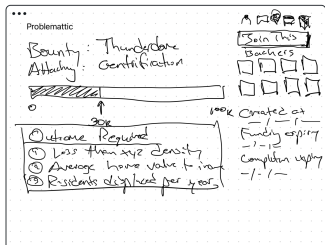 Problemattic
Bounty: Thunderdome
Attacking: Gentrification
0 30k 100k
Outcome Required
① Less than xyz density
② Average home value to
③ Residents displaced per year
Join this
Backers
Created at
-/-/-
Funding expiry
-/-/-
Completion expiry
-/-/-